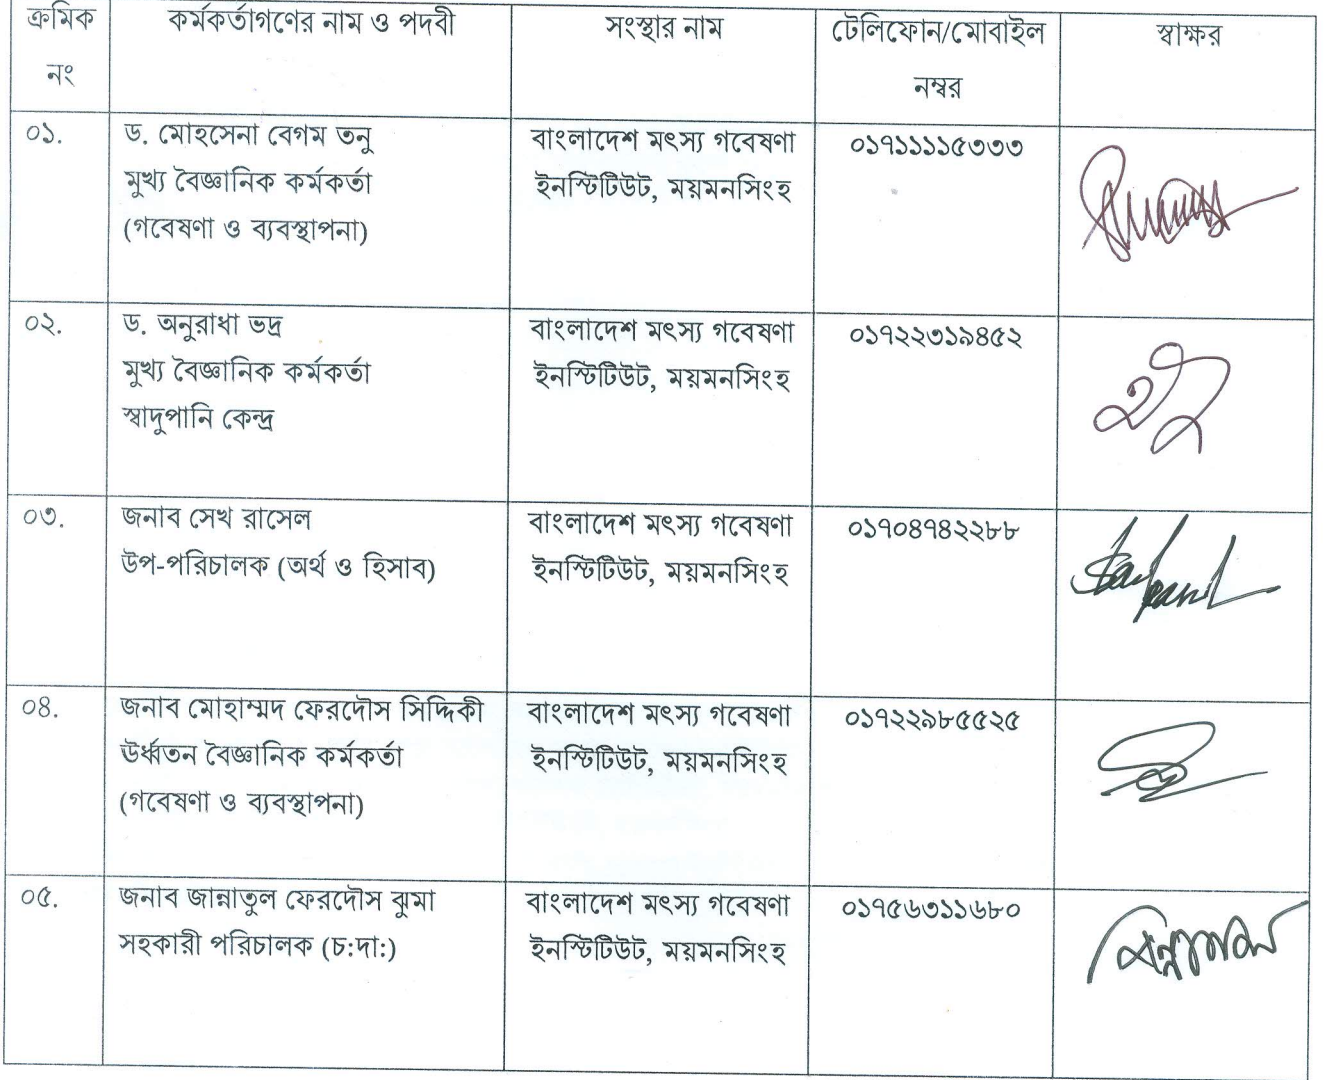 ক্রমিক নং
কর্মকর্তাগণের নাম ও পদবী
সংস্থার নাম
টেলিফোন/মোবাইল নম্বর
স্বাক্ষর
০১.
ড. মোহসেনা বেগম তনু
মুখ্য বৈজ্ঞানিক কর্মকর্তা
(গবেষণা ও ব্যবস্থাপনা)
বাংলাদেশ মৎস্য গবেষণা
ইনস্টিটিউট, ময়মনসিংহ
০১৭১১১১৫৩৩৩
০২.
ড. অনুরাধা ভদ্র
মুখ্য বৈজ্ঞানিক কর্মকর্তা
স্বাদুপানি কেন্দ্র
বাংলাদেশ মৎস্য গবেষণা
ইনস্টিটিউট, ময়মনসিংহ
০১৭২২৩১৯৪৫২
০৩.
জনাব সেখ রাসেল
উপ-পরিচালক (অর্থ ও হিসাব)
বাংলাদেশ মৎস্য গবেষণা
ইনস্টিটিউট, ময়মনসিংহ
০১৭০৪৭৪২২৮৮
০৪.
জনাব মোহাম্মদ ফেরদৌস সিদ্দিকী
ঊর্ধ্বতন বৈজ্ঞানিক কর্মকর্তা
(গবেষণা ও ব্যবস্থাপনা)
বাংলাদেশ মৎস্য গবেষণা
ইনস্টিটিউট, ময়মনসিংহ
০১৭২২৯৮৫৫২৫
০৫.
জনাব জান্নাতুল ফেরদৌস ঝুমা
সহকারী পরিচালক (চ:দা:)
বাংলাদেশ মৎস্য গবেষণা
ইনস্টিটিউট, ময়মনসিংহ
০১৭৫৬৩১১৬৮০